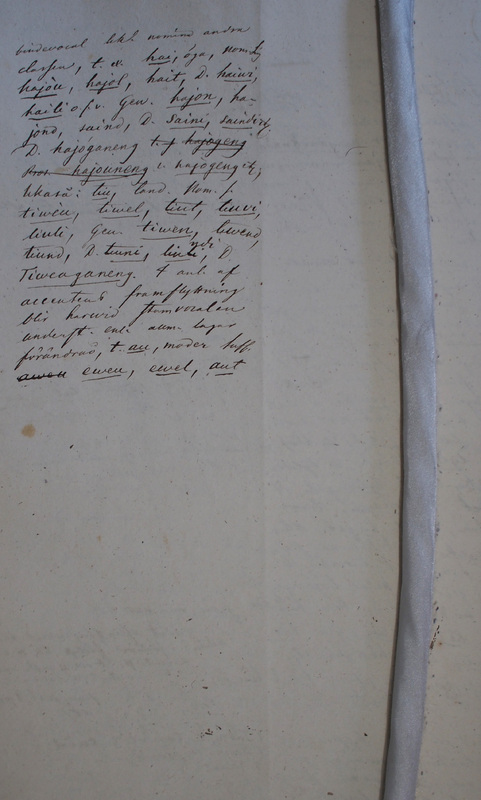 bindevocal likt nomina andra
classen, t. ex. hai, öga, nom. sg.
hajòu, hajòl, hait, D. haiwi,
haili o.s.v. Gen. hajon, ha-
jond, saind, D. saini, saindi
D. hajòganeng t. hajògeng
hajouneng hajogeng
likaså: tiu, land. Nom. s.
tiwèu, tiwel, tiut, tiuvi,
tiuli, Gen. tiwen, tiwend,
tiund, D. tiuni, tiuli, ndi, D.
Tiweaganeng. I anl. af
accentens framflyttning
blir härvid stamvocalen
underst. enl. allm. lagar
förändrad, t. au, moder suff.
awen ewen, ewel, aut